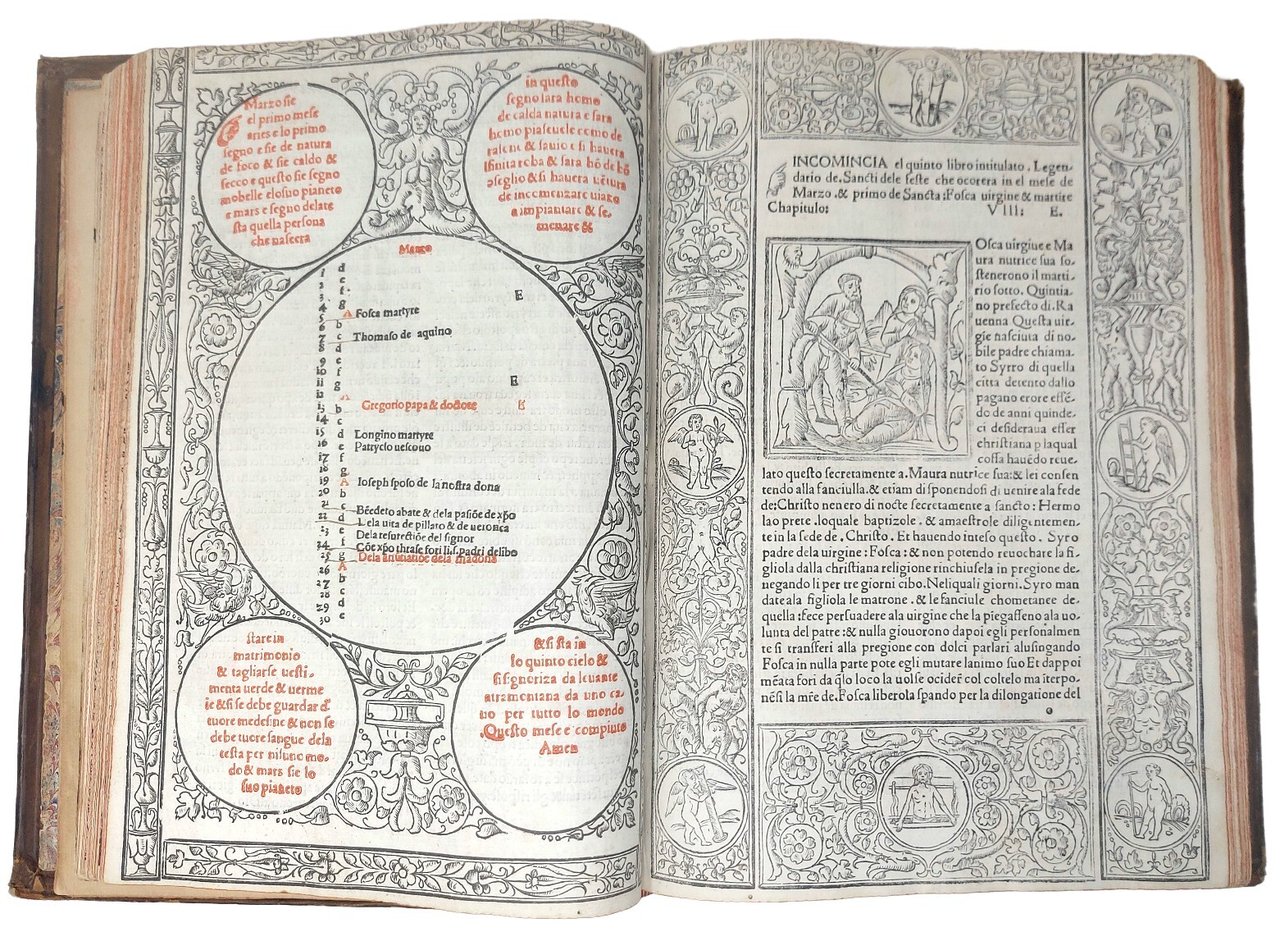 Marzo sie
el primo mese
aries e lo primo
segno e sie de natura
de foco & sie caldo &
secco e questo sie segno
mobelle elo suo pianeto
e mars e segno delate
sta quella persona
che nascera
in questo
segno sara homo
de calda natura e sara
homo piaseuole como de
& sauio e si hauera
roba & sara
& si hauera
de incomenzare uiazo
a impiantare & se-
menare &
Marzo
1 d
2 e
3 f E
4 g
5 A Fosca martyre
6 b
7 c Thomaso de aquino
8 d
9 e
10 f
11 g E
12 A Gregorio papa & doctore E
13 b
14 c
15 d Longino martyre
16 e Patrycio uescouo
17 f
18 g
19 A Ioseph sposo de la nostra dona
20 b
21 c Bēedeto abate & dela pasiōe de xp̄o
22 d Lela uita de pillato & de ueronica
23 e Dela resurectiōe del signor
24 f
25 g Dela anūtiatiōe dela madona
26 A
27 b
28 c
29 d
30 e
stare in
matrimonio
& tagliarse uesti-
menta uerde & uerme
ie & si se debe guardar d'
tuore medesine & non se
debe tuore sangue dela
testa per nisuno mo-
do & mars sie lo
suo pianeto
& si sta in
lo quinto cielo &
si signoriza da leuante
atramontana da uno ca-
uo per tutto lo mondo
Questo mese e compiuto
Amen
INCOMINCIA el quinto libro intitulato, Legen-
dario de. Sancti dele feste che ocorera in el mese de
Marzo .& primo de Sancta: Fosca uirgine & martire
Chapitulo: VIII: E.
Osca uirgiue e Ma
ura nutrice sua so-
stenerono il marti-
rio sotto. Quintia-
no prefecto di. Ra
uenna Questa uir-
gie nasciuta di no-
bile padre chiama-
to. Syrro di quella
citta detento dallo
pagano erore essē-
do de anni quinde-
ci desideraua esser
christiana p laqual
cossa hauēdo reue-
lato questo secretamente a. Maura nutrice sua: & lei consen
tendo alla fanciulla. & etiam disponendosi di uenire ala fede
de: Christo nenero di nocte secretamente a sancto: Hermo
lao prete .loquale baptizole . & amaestrole diligentemen-
te in la fede de . Christo. Et hauendo inteso questo . Syro
padre dela uirgine: Fosca: & non potendo reuochare la fi-
gliola dalla christiana religione rinchiusela in pregione de-
negando li per tre giorni cibo. Neliquali giorni. Syro man
date ala figliola le matrone . & le fanciule chometanee de-
quella: fece persuadere ala uirgine che la piegasseno ala uo-
lunta del patre: & nulla giouorono dapoi egli personalmen
te si transferi alla pregione con dolci parlari alusingando
Fosca in nulla parte pote egli mutare lanimo suo Et dappoi
mēata fori da q̄lo loco la uolse ocider̄ col coltelo ma iterpo-
nēsi la mr̄e de. Fosca liberola spando per la dilongatione del